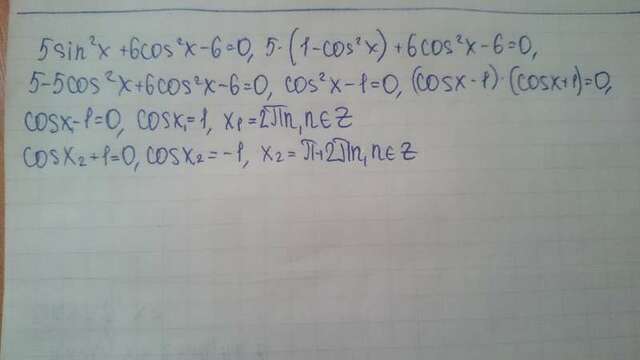 5sin²x+6cos²x-6=0, 5·(1-cos²x)+6cos²x-6=0,
5-5cos²x+6cos²x-6=0, cos²x-1=0, (cosx-1)·(cosx+1)=0,
cosx-1=0, cosx₁=1, x₁=2πn, n∈Z
cosx₂+1=0, cosx₂=-1, x₂=π+2πn, n∈Z